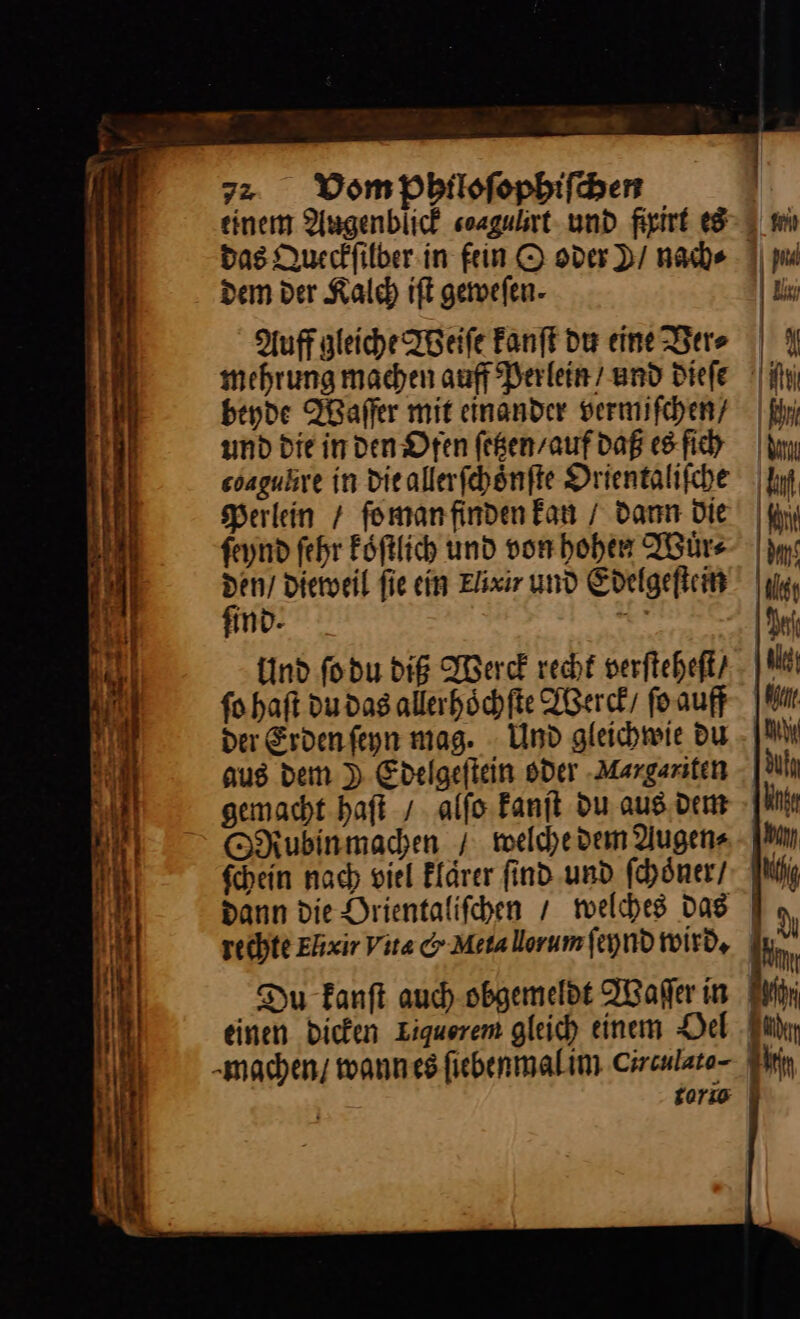 72 Vom Philoſophiſchen
einem Augenblick coagulirt und fixirt es
das Queckſilber in fein ☉ oder ☽/ nach⸗
dem der Kalch iſt geweſen.
Auff gleiche Weiſe kanſt du eine Ver⸗
mehrung machen auff Perlein / und dieſe
beyde Waſſer mit einander vermiſchen/
und die in den Ofen ſetzen/ auf daß es ſich
coagulire in die allerſchoͤnſte Orientaliſche
Perlein / ſo man finden kan / dann die
ſeynd ſehr koͤſtlich und von hohen Wuͤr⸗
den/ dieweil ſie ein Elixir und Edelgeſtein
ſind.
Und ſo du diß Werck recht verſteheſt/
ſo haſt du das allerhoͤchſte Werck/ ſo auff
der Erden ſeyn mag. Und gleichwie du
aus dem ☽ Edelgeſtein oder Margariten
gemacht haſt / alſo kanſt du aus dem
☉ Rubin machen / welche dem Augen⸗
ſchein nach viel klaͤrer ſind und ſchoͤner/
dann die Orientaliſchen / welches das
rechte Elixir Vita & Metallorum ſeynd wird.
Du kanſt auch obgemeldt Waſſer in
einen dicken Liquorem gleich einem Oel
machen/ wann es ſiebenmal im Circulato-
torio